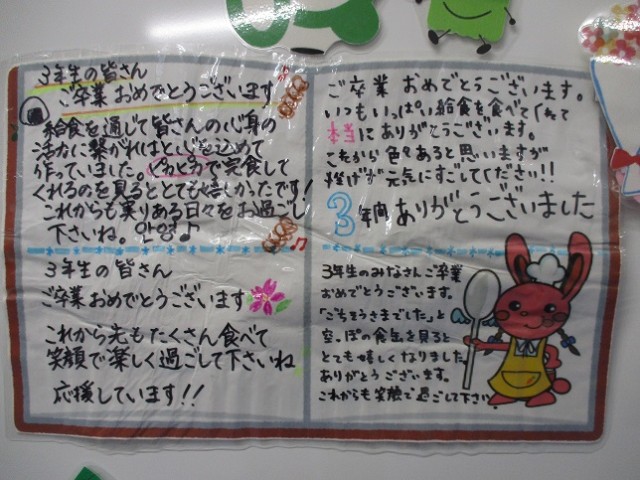 3年生の皆さん
ご卒業おめでとうございます
給食を通じて皆さんの心身の
活力に繋がればと心を込めて
作っていました。ピカピカで完食して
くれるのを見るととても嬉しかったです!
これからも実りある日々をお過ごし
下さいね。안녕♪
3年生の皆さん
ご卒業おめでとうございます
これから先もたくさん食べて
笑顔で楽しく過ごして下さいね
応援しています!!
ご卒業おめでとうございます。
いつもいっぱい給食を食べてくれて
本当にありがとうございます。
これから色々あると思いますが
怪げが元気にすごしてください!!
3年間ありがとうございました
3年生のみなさんご卒業
おめでとうございます。
「ごちそうさまでした」と
空っぽの食缶を見ると
とても嬉しくなりました。
ありがとうございます。
これからも笑顔で過ごして下さい。